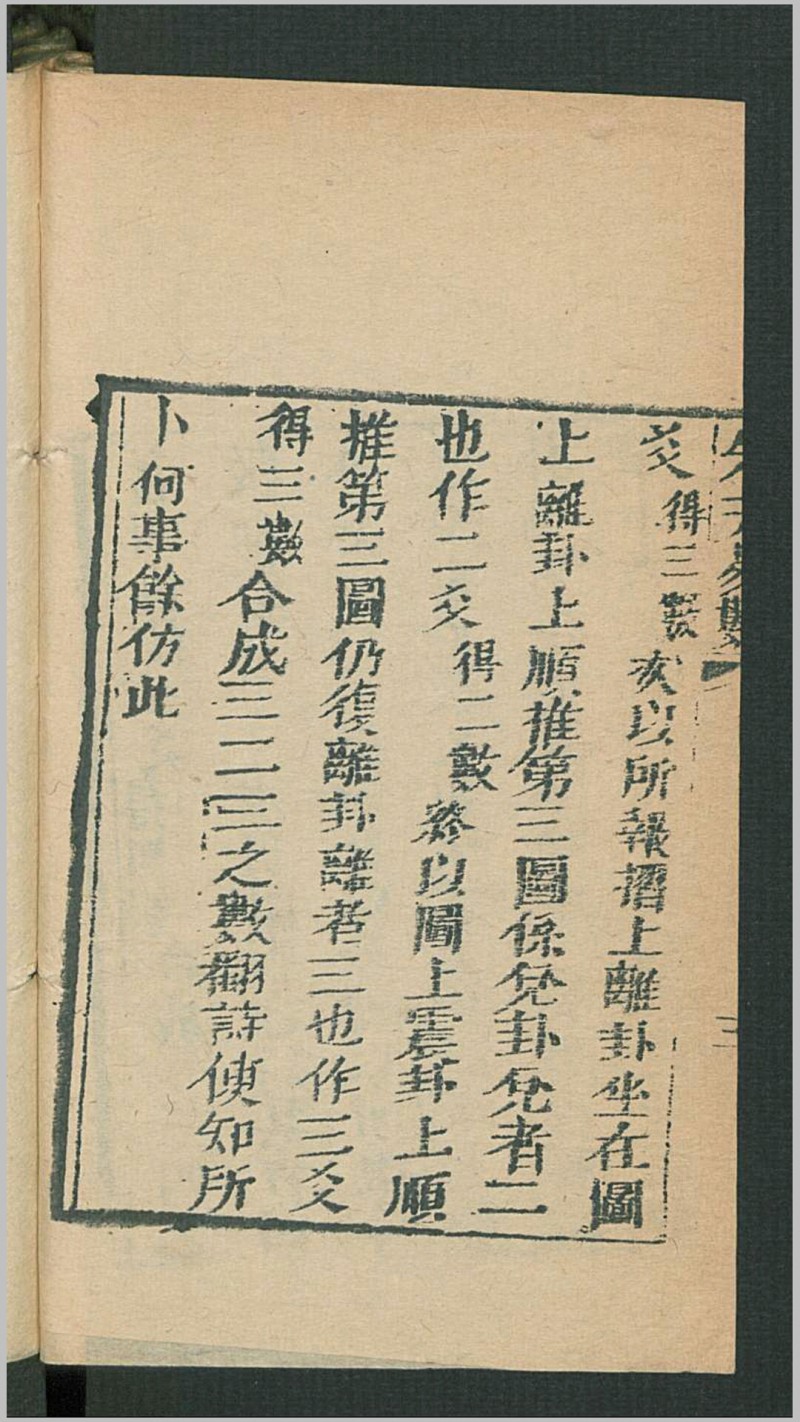 爻得三數次以所報摺上離卦坐在圖
上離卦上順推第三圖係兌卦兌者二
也作二爻得二數終以圖上震卦上順
推第三圖仍復離卦離者三也作三爻
得三數合成三二三之數翻詩便知所
卜何事餘仿此